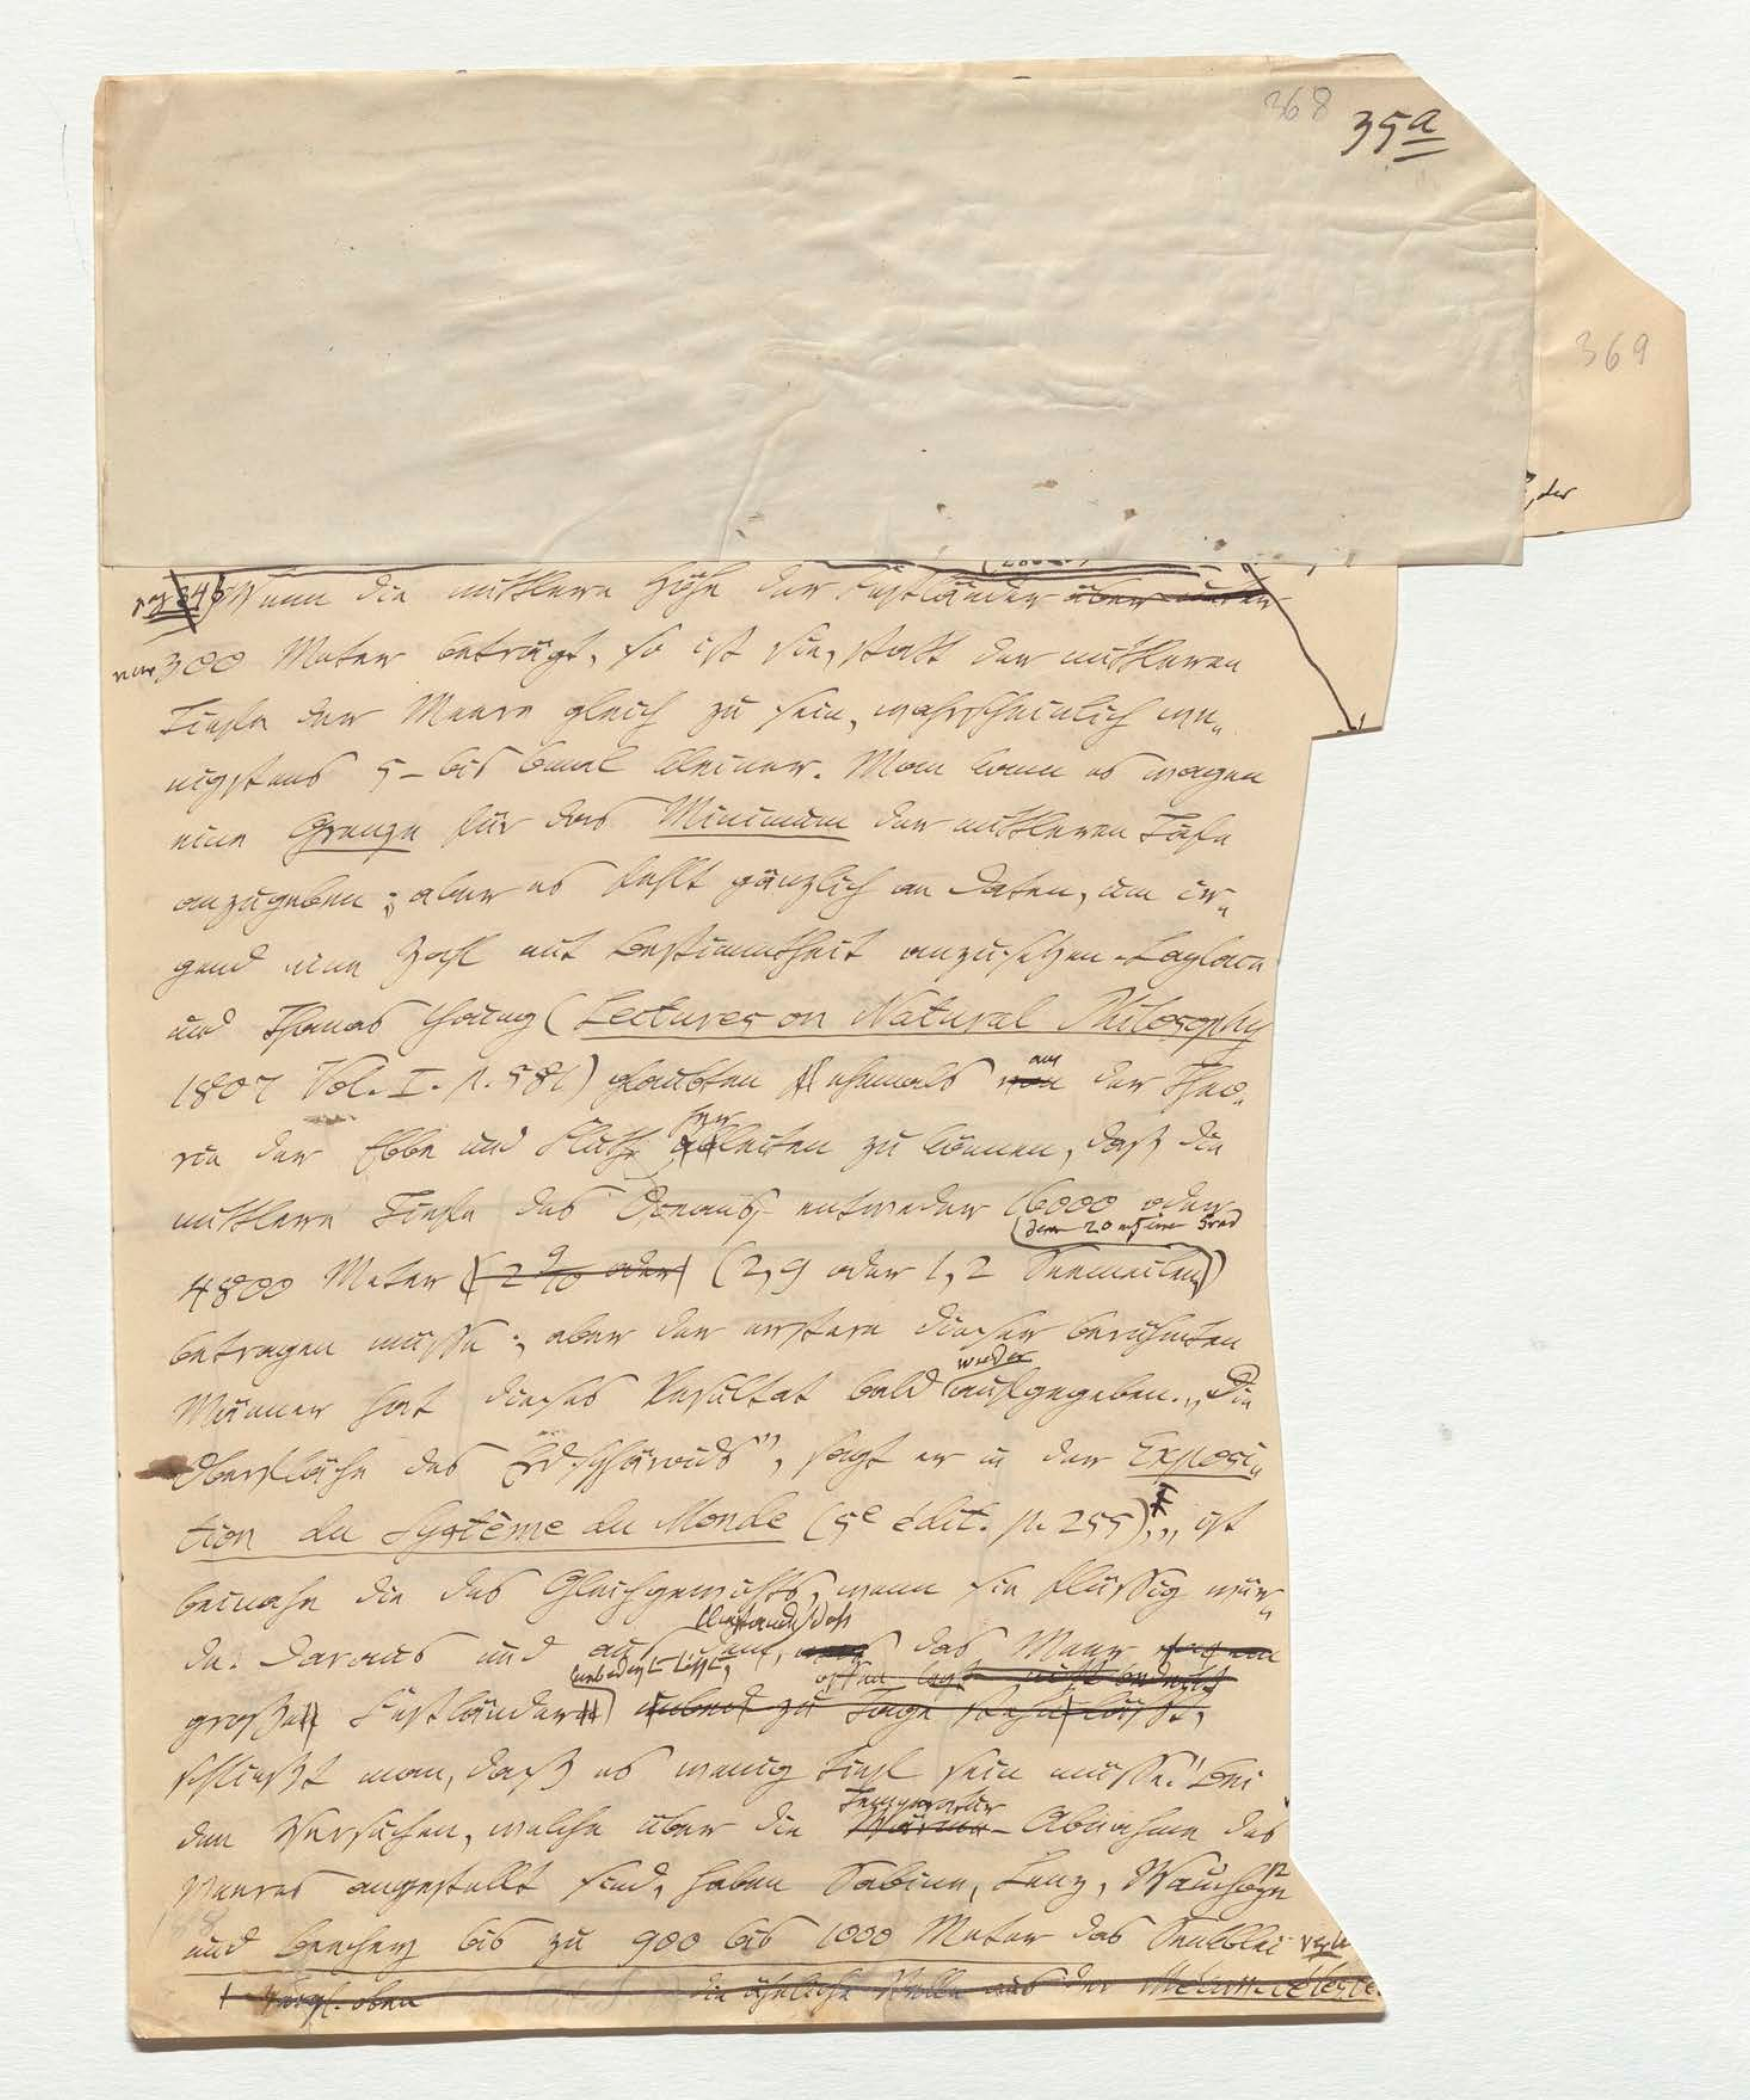 368 35a
369
, der
Wenn die mittlere Höhe der Festländer über
nur 300 Meter beträgt, so ist sie, statt der mittleren
Tiefe der Meere gleich zu sein, wahrscheinlich we„
nigstens 5- bis 6mal kleiner. Man kann es wagen
eine Grenze für das Minimum der mittleren Tiefe
anzugeben; aber es fehlt gänzlich an Daten, um ir„
gend eine Zahl mit Bestimmtheit anzusetzen. Laplace
und Thomas Young (Lectures on Natural Philosophy
aus
1807 Vol. I. p. 581) glaubten ehemals von der Theo„
her
rie der Ebbe und Fluth ableiten zu können, daß die
mittlere Tiefe des Oceans entweder 16000 oder
(deren 20 auf einen Grad
4800 Meter (2 9/10 oder) (2,9 oder 1,2 Seemeilen)
betragen müsse; aber der erstere dieser berühmten
wieder
Männer hat dieses Resultat bald aufgegeben. „Die
Oberfläche des Erd-Sphäroids", sagt er in der Exposi„
tion du Système du Monde (5e édit. p. 255), „ist
beinahe die des Gleichgewichts, wenn sie flüssig wür„
Umstand, daß
de. Daraus und aus dem, was das Meer
unbedeckt läßt,
großen Festländern zu Tage stehn läßt,
schließt man, daß es wenig tief sein müsse." Bei
Temperatur
den Versuchen, welche über die Wärme-Abnahme des
Meeres angestellt sind, haben Sabine, Lenz, Wauchope
und Beechey bis zu 900 bis 1000 Meter das Senkblei
Vergl. oben die ähnliche Stelle aus der Mécan. céleste